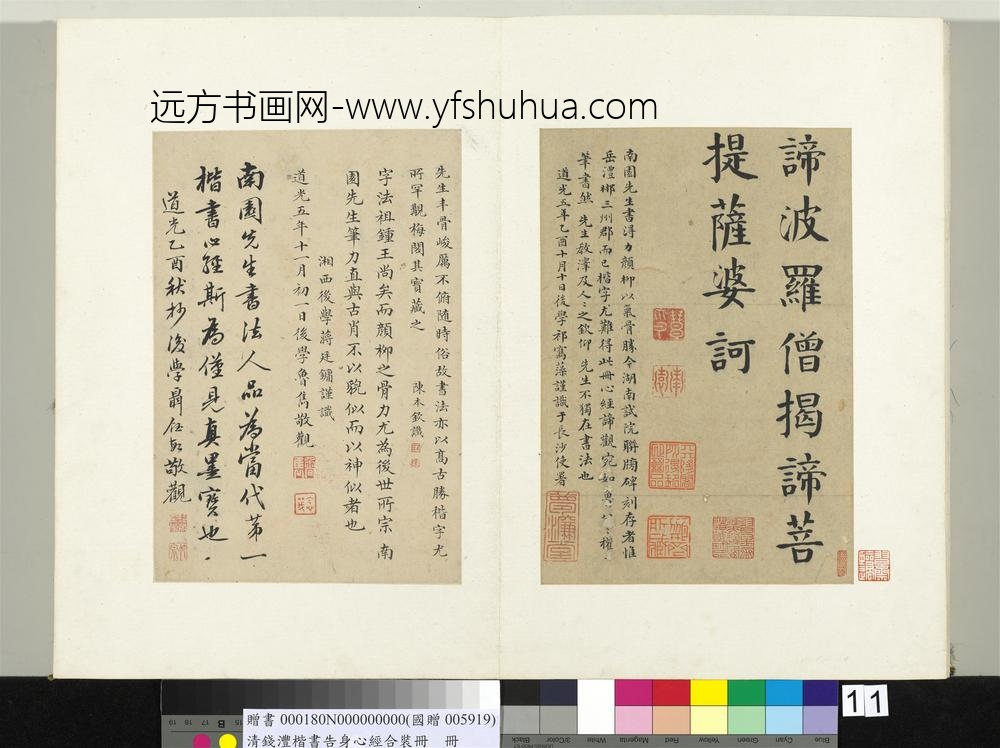 远方书画网-www.yfshuhua.com
諦波羅僧揭諦菩
提薩婆訶
南園先生書淂力顏柳以氣骨勝今湖南試院聯牓碑刻存者惟
岳澧郴三州郡而已楷字尤難得此冊心經諦觀宛如魯公㦯權
筆書然 先生教澤及人人之欽仰 先生不獨在書法也
道光五年乙酉十月十日後學祁寯藻謹識于長沙使署
夢濂堂
先生丰骨峻厲不俯隨時俗故書法亦以髙古勝楷字尤
所罕覯梅閣其寶藏之 陳本欽識
字法祖鍾王尚矣而顏柳之骨力尤為後世所宗 南
園先生筆力直與古肖不以貌似而以神似者也
湘西後學蔣廷鏞謹識
道光五年十一月初一日後學魯雋敬觀
南園先生書法人品為當代第一
楷書心經斯為僅見真墨寶也
道光乙酉秋抄後學聶敬觀
贈書 000180N000000000(國贈 005919)
清錢澧楷書告身心經合裝冊 冊
11
19 18 17 16 15
B
Black
3/Color
White
Magenta
Red
Yellow
Green
Cyan
Blue